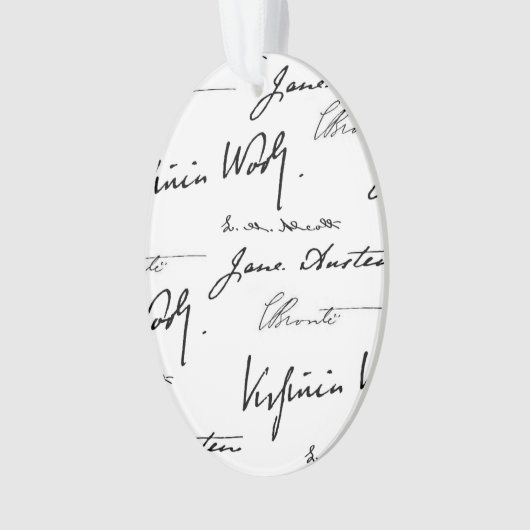 Jane.
CBrontë
ginia Woolf.
L. M. Alcott
të Jane. Austen
Woolf. CBrontë
Virginia W
sten L.